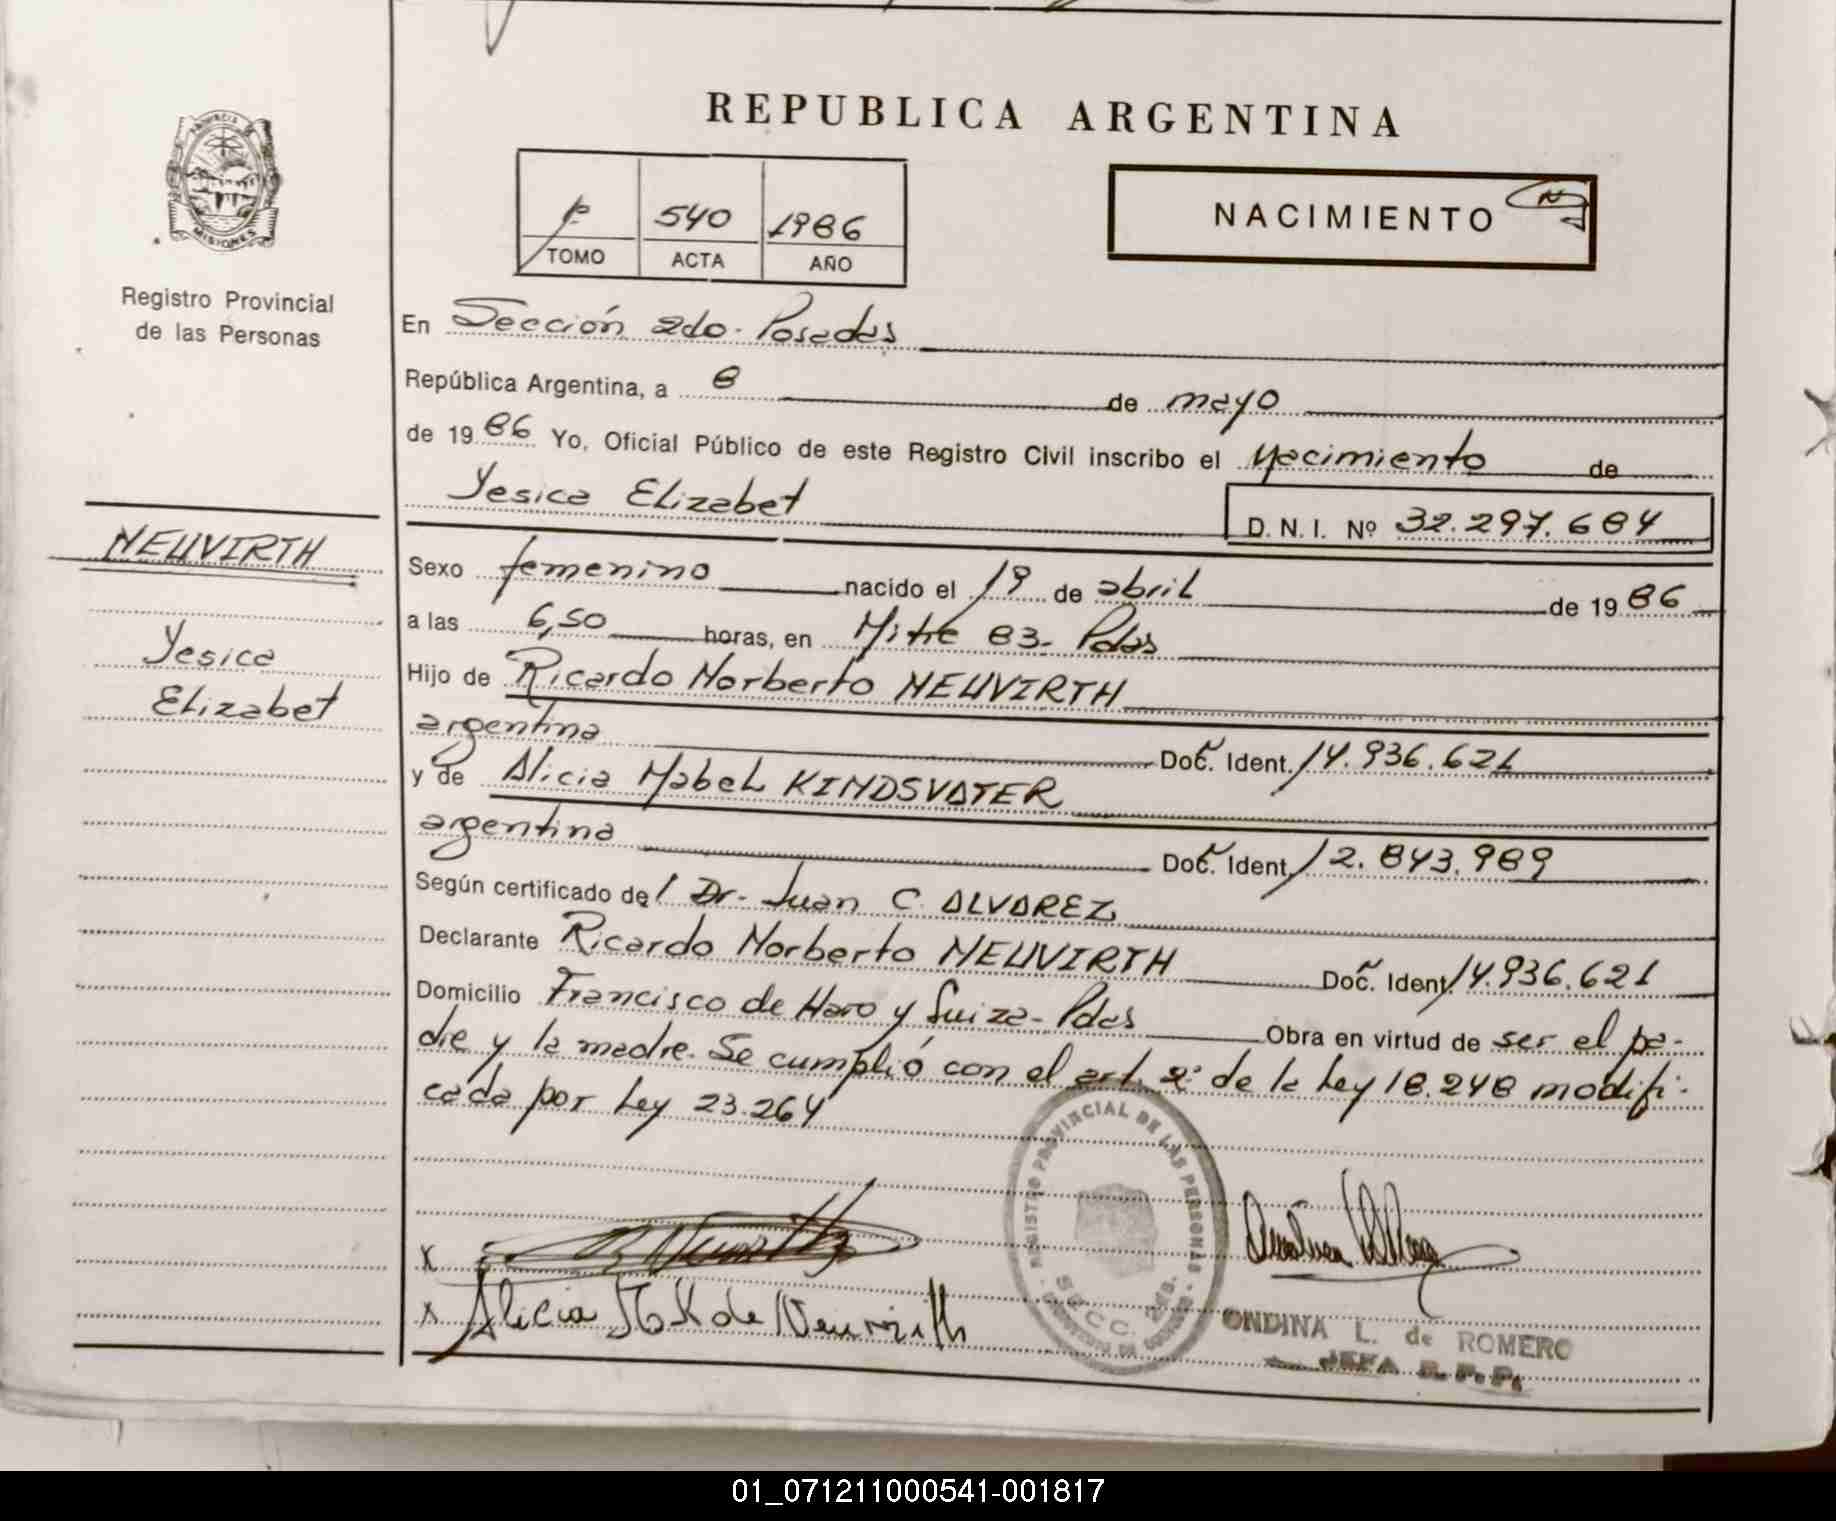 REPUBLICA ARGENTINA
PROVINCIA DE
MISIONES
Registro Provincial
de las Personas
540 1986
TOMO ACTA AÑO
NACIMIENTO
En Sección 2do. Posadas
República Argentina, a 8 de mayo
de 1986 Yo, Oficial Público de este Registro Civil inscribo el Nacimiento de
Yesica Elizabet D. N. I. Nº 32.297.684
NEUVIRTH
Yesica
Elizabet
Sexo femenino nacido el 19 de abril de 1986
a las 6,50 horas, en Mitre 83- Pdas
Hijo de Ricardo Norberto NEUVIRTH
argentina Doc. Ident. 14.936.621
y de Alicia Mabel KINDSVATER
argentina Doc. Ident. 12.843.989
Según certificado del Dr. Juan C. ALVAREZ
Declarante Ricardo Norberto NEUVIRTH Doc. Ident. 14.936.621
Domicilio Francisco de Haro y Suiza- Pdas Obra en virtud de ser el pa-
dre y la madre. Se cumplió con el art. 2º de la Ley 18.248 modifi-
cada por Ley 23.264
REGISTRO PROVINCIAL DE LAS PERSONAS
SECC. 2da.
x
x Alicia M K de Neuvirth
ONDINA L. de ROMERO
JEFA R.P.P.
01_071211000541-001817